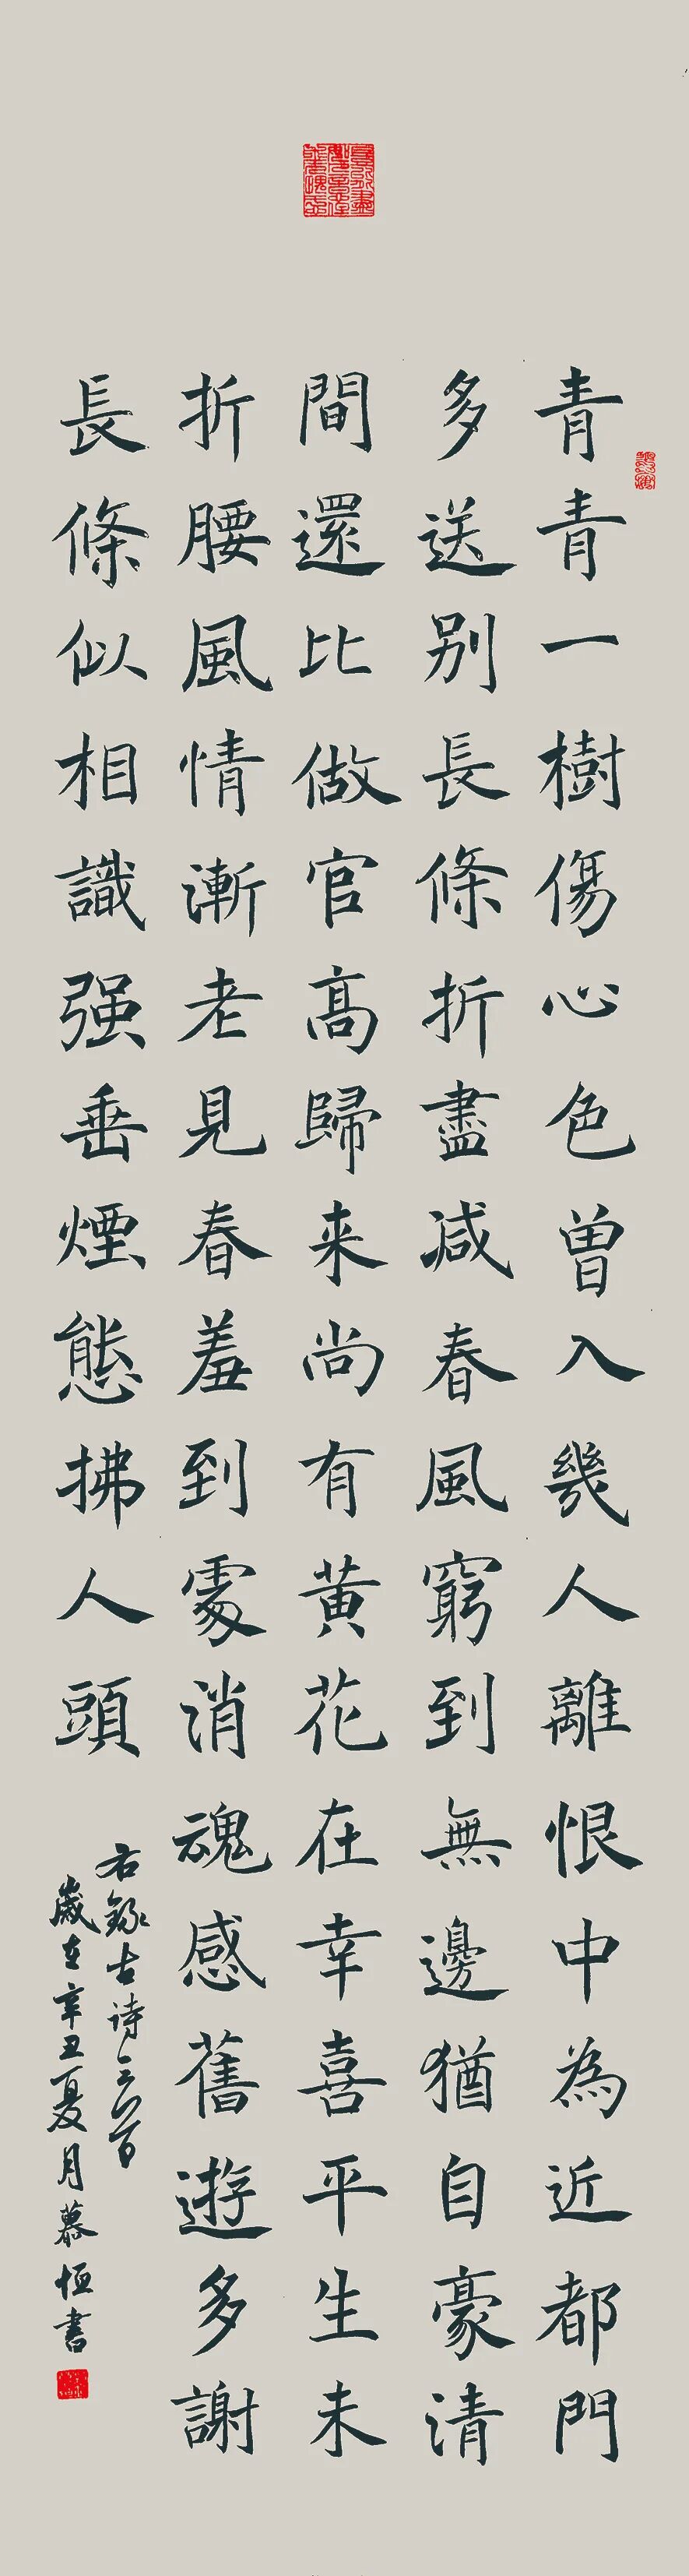 青青一樹傷心色曾入幾人離恨中為近都門
多送别長條折盡减春風窮到無邊猶自豪清
間還比做官高歸来尚有黄花在幸喜平生未
折腰風情漸老見春羞到處消魂感舊遊多謝
長條似相識强垂煙態拂人頭
右録古诗三首
歲在辛丑夏月慕恒書